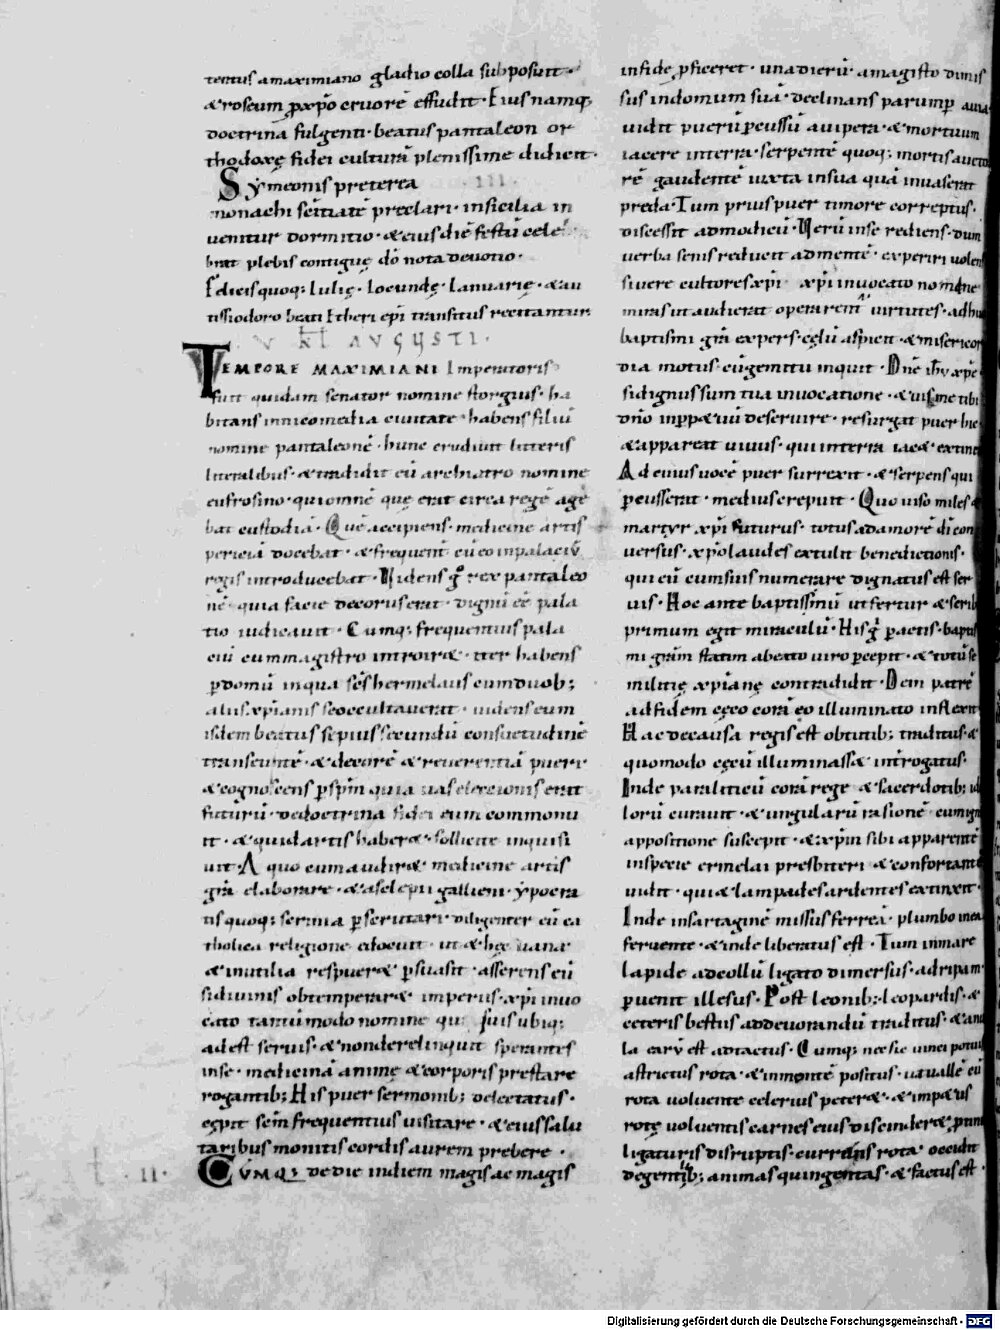 tentus a maximiano gladio colla subposuit·
& roseum p xpo cruorē effudit· Eius namq;
doctrina fulgenti· beatus pantaleon or
thodoxę fidei culturā plenissime didicit·
Symeonis preterea ·III·
monachi sc̄itatē preclari· in sicilia in
uenitur dormitio· & eius diē festū cele
brat plebis contiguę dō nota deuotio·
Felicis quoq; Iulię· Iocundę· Ianuarię· & au
tissiodoro beati Etherii ep̄i transitus recitantur
V KL AVGVSTI·
TEMPORE MAXIMIANI Imperatoris
fuit quidam senator nomine storgius· ha
bitans in nicomedia ciuitate· habens filiū
nomine pantaleonē· hunc erudiuit litteris
literalibus· & tradidit eū archiatro nomine
eufrosino· qui omnē quę erat circa regē age
bat custodiā· Quē accipiens· medicine artis
periciā docebat· & frequent̄ eū eo in palaciū
regis introducebat· Videns g° rex pantaleo
nē· quia facie decorus erat· dignū eē pala
tio iudicauit· Cumq; frequentius pala
ciū cum magistro introir&· iter habens
p domū in qua sc̄s hermelaus cum duob;
aliis xp̄ianis se occultauerat· uidens eum
isdem beatus sepius secundū consuetudinē
transeuntē· & decorē & reuerentiā pueri
& cognoscens p sp̄m quia uas electionis erat
futurū· de doctrina fidei eum commonu
it· & quid artis haber&· sollicite inquisi
uit· A quo cum audir& medicine artis
grā elaborare· & asclepii gallieni· ypocra
tis quoq; sermia pscrutari· diligenter eū ca
tholica religione edocuit· ut & hęc uana
& inutilia respuer& psuasit· asserens eū
si diuinis obtemperar& imperiis· xp̄i inuo
cato tantūmodo nomine qui suis ubiq;
adest seruis· & non derelinquit sperantes
in se· medicinā animę & corporis prestare
rogantib; His puer sermonib; delectatus·
cępit sc̄m frequentius uisitare· & eius salu
taribus monitis cordis aurem prebere·
t· II· CVMQ; de die in diem magis ac magis
in fide pficeret· una dierū a magistro dimis
sus in domum suā· declinans parump a uia
uidit puerū pcussū a uipera· & mortuum
iacere in terra· serpentē quoq; mortis aucto
rē gaudentē iuxta in sua quā inuaserat
preda· Tum prius puer timore correptus·
discessit ad modicū· Verū in se rediens· dum
uerba senis reducit ad mentē· experiri uolens
si uere cultores xp̄i xp̄i inuocato nomine
mira sic ut audierat operarent̄ uirtutes· adhuc
baptismi grā expers· cęlū aspicit· & misericor
dia motus cū gemitu inquit· Dn̄e ih̄u xp̄e
si dignus sum tua inuocatione· & uis me tibi
dn̄o in ppetuū deseruire· resurgat puer hic
& appareat uiuus· qui in terra iac& extinctus
Ad cuius uocē puer surrexit· & serpens qui
pcusserat· medius crepuit· Quo uiso miles &
martyr xp̄i futurus· totus ad amorē dī con
uersus· xp̄o laudes extulit benedictionis·
qui eū cum suis numerare dignatus est ser
uis· Hoc ante baptismū ut fertur & scrib
primum egit miraculū· His g° pactis· baptis
mi grām statim a beato uiro pcepit· & totū se
militię xp̄ianę contradidit· Dein patrē
ad fidem cęco corā eo illuminato inflexit
Hac de causa regis est obtutib; traditus· &
quomodo cęcū illuminass& introgatus·
Inde paraliticū corā rege & sacerdotib;
lorū curauit· & ungularū rasionē cum igni
appositione suscepit· & xp̄m sibi apparentē
in specie ermelai presbiteri & confortantē
uidit· qui & lampades ardentes extinxit·
Inde in sartaginē missus ferreā· plumbo
feruente· & inde liberatus est· Tum in mare
lapide ad collū ligato dimersus· ad ripam
puenit illesus· Post leonib; leopardis· &
ceteris bestiis ad deuorandū traditus· &
la earū est adtactus· Cumq; nec sic uinci potuis
astrictus rota· & in montē positus· ut a ualle cū
rota uoluente celerius peter&· & imp&us
rotę uoluentis carnes eius discinder& ptinus
ligaturis disruptis· currens rota occidit
degentib; animas quingentas· & factus est·
Digitalisierung gefördert durch die Deutsche Forschungsgemeinschaft - DFG